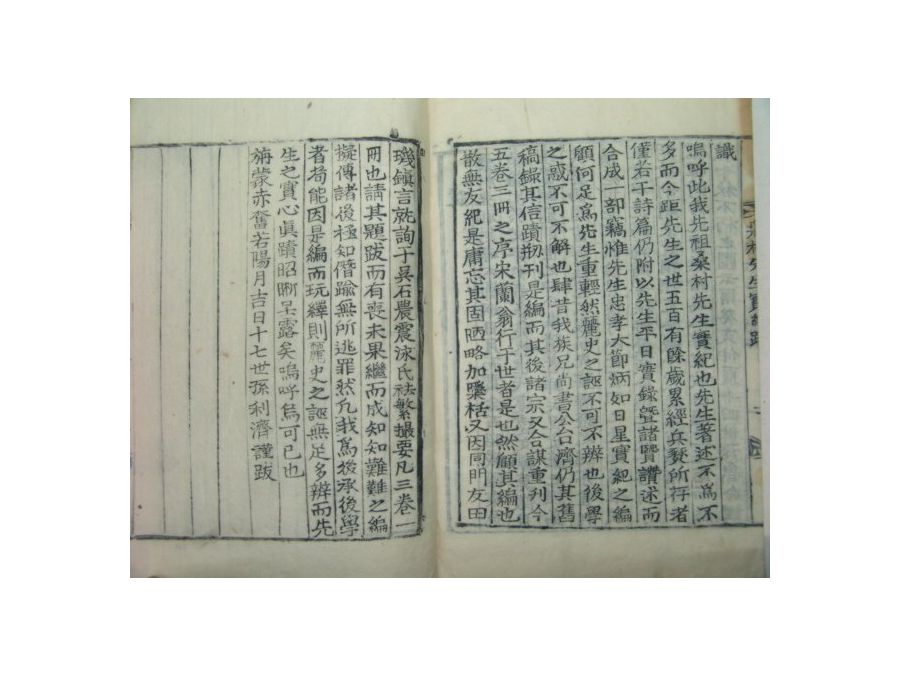 識
嗚呼此我先祖桑村先生實紀也先生著述不爲不
多而今距先生之世五百有餘歲累經兵燹所存者
僅若干詩篇仍附以先生平日實錄曁諸賢讚述而
合成一部竊惟先生忠孝大節炳如日星實紀之編
顧何足爲先生重輕然麗史之誣不可不辨也後學
之惑不可不解也肆昔我族兄尚書公台濟仍其舊
稿錄其信蹟刱刊是編而其後諸宗又合謀重刊今
五卷三冊之序宋蘭翁行于世者是也然顧其編也
散無友紀是庸忘其固陋略加櫽栝又因同門友田
璣鎮言就詢于吳石農震泳氏祛繁撮要凡三卷一
冊也請其題跋而有喪未果繼而成知知難難之編
擬傳諸後極知僭踰無所逃罪然凢我爲後承後學
者苟能因是編而玩繹則麗史之誣無足多辨而先
生之實心眞蹟昭晣呈露矣嗚呼烏可已也
旃蒙赤奮若陽月吉日十七世孫利濟謹跋